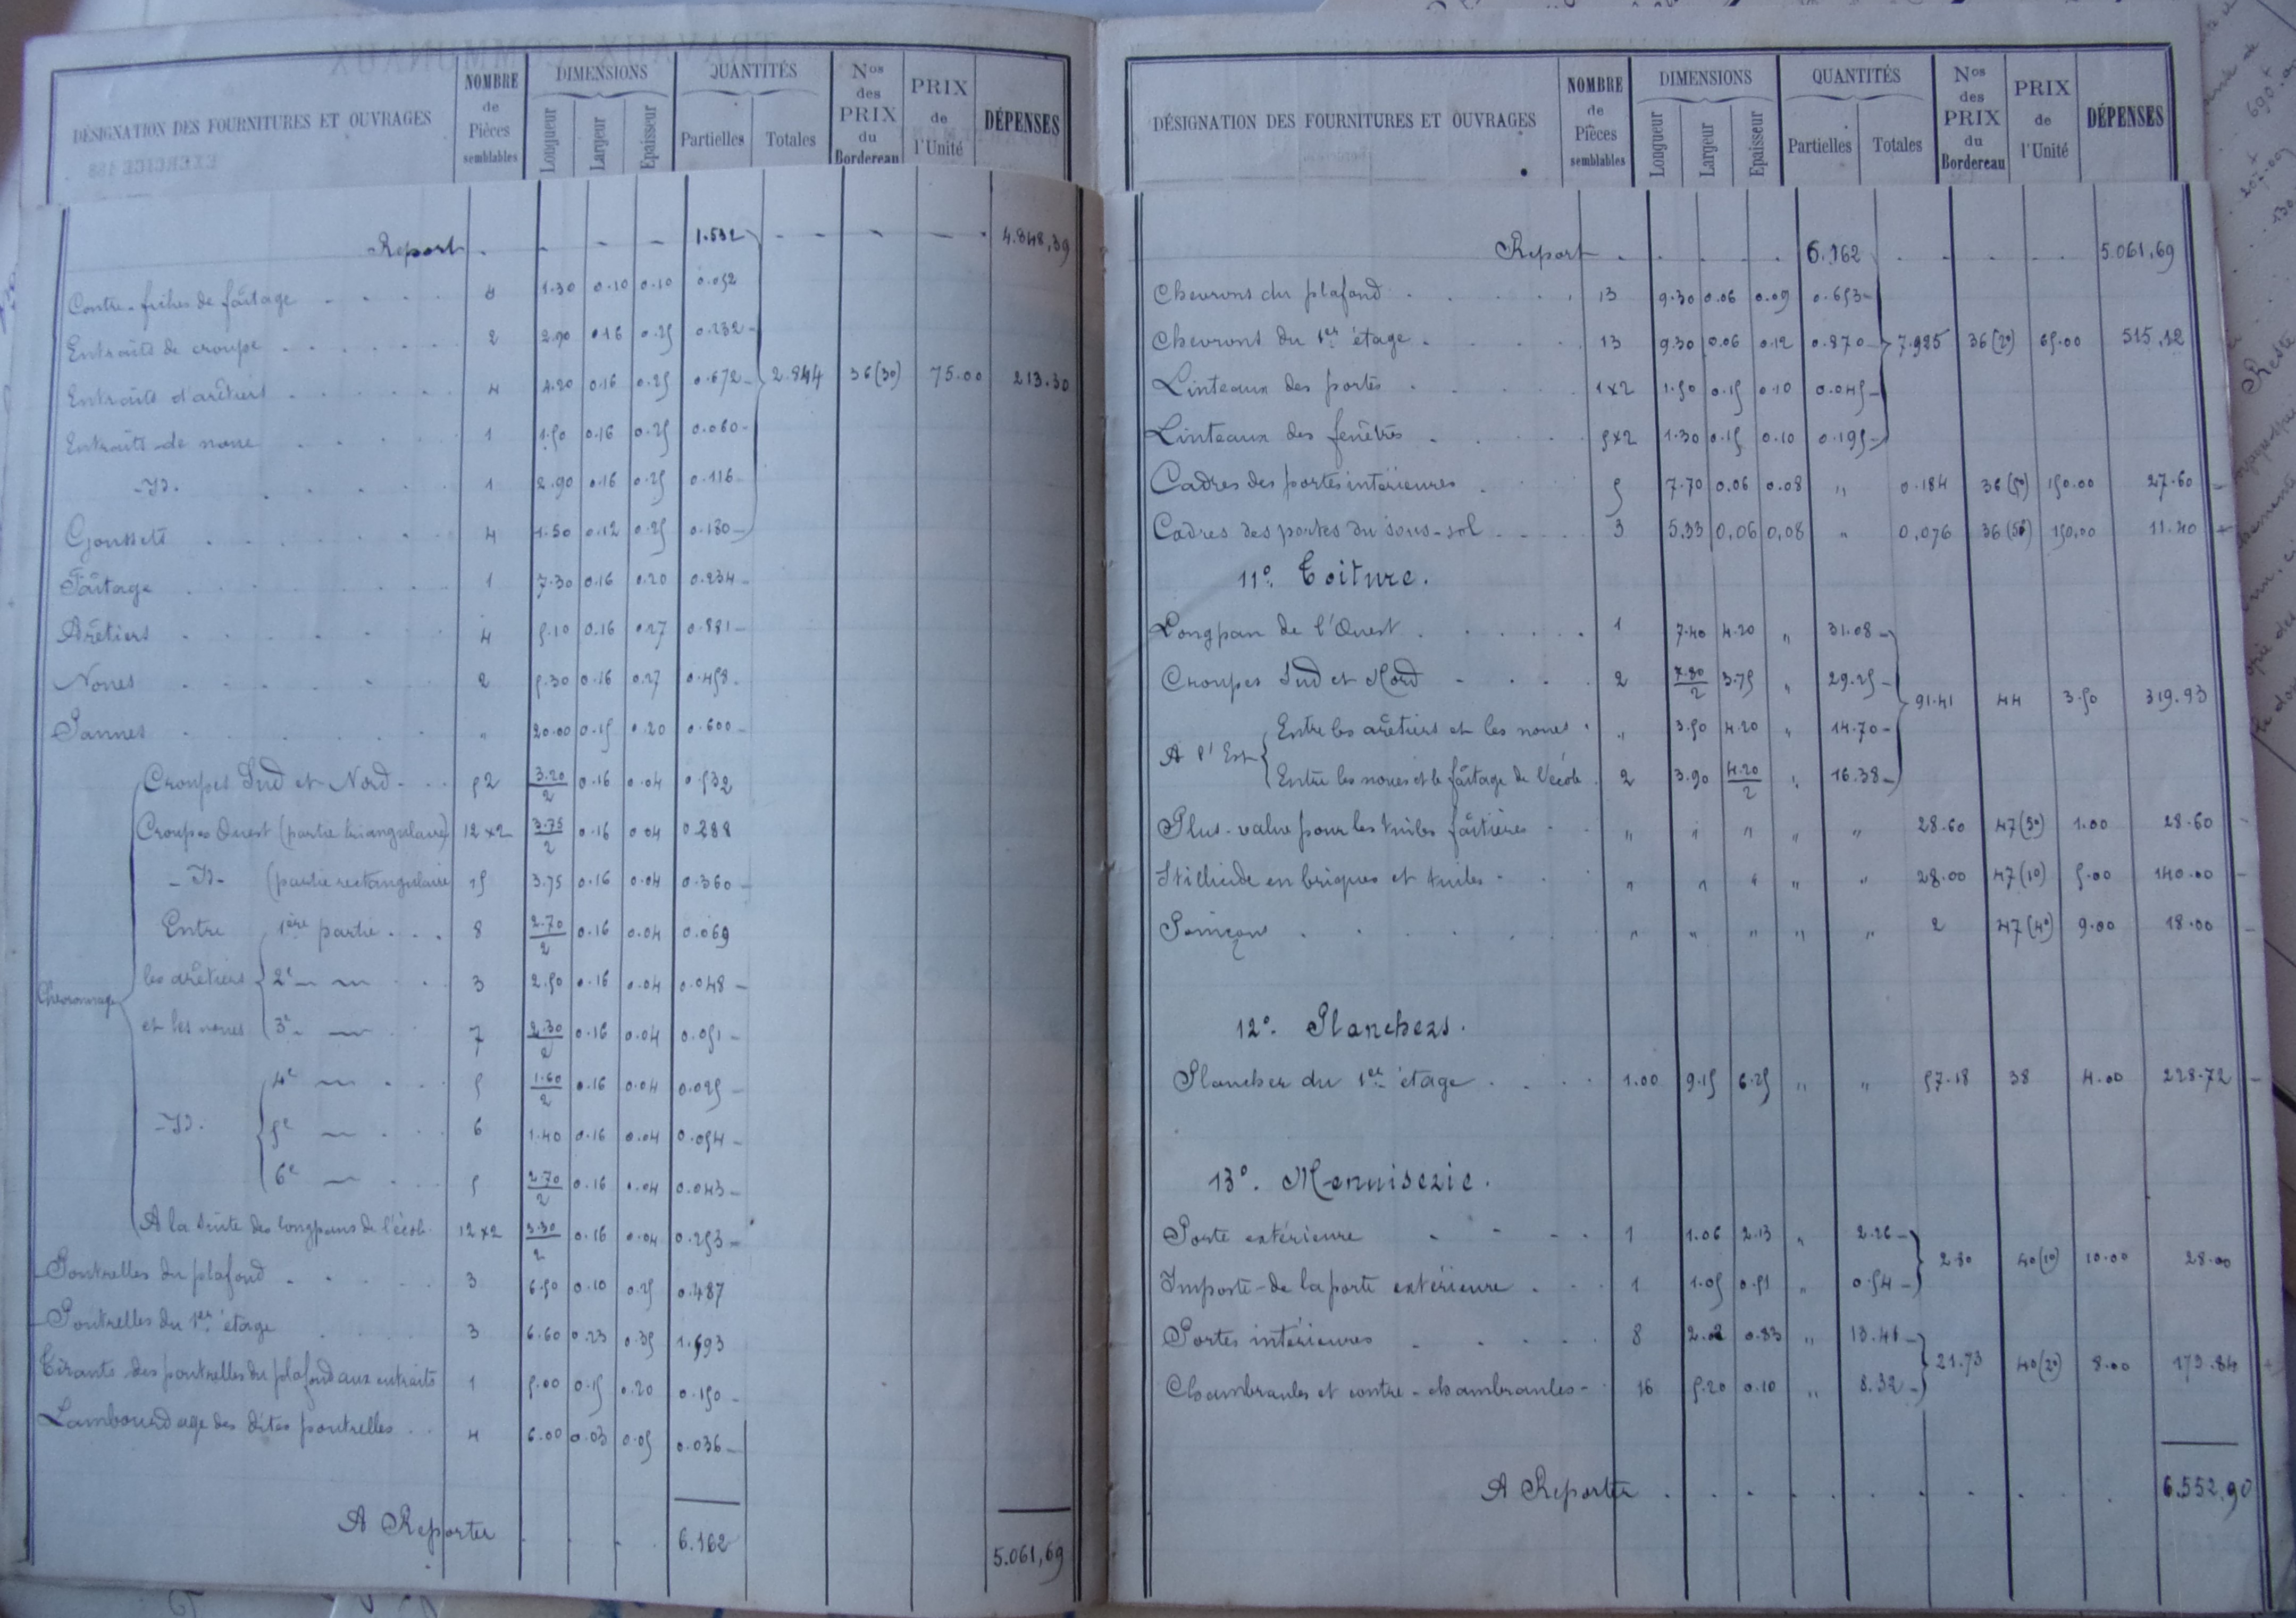 DÉSIGNATION DES FOURNITURES ET OUVRAGES NOMBRE de Pièces semblables DIMENSIONS Longueur Largeur Epaisseur QUANTITÉS Partielles Totales Nos des PRIX du Bordereau PRIX de l'Unité DÉPENSES
Report 1.532 4.848,39
Contre-fiches de faîtage 4 1.30 0.10 0.10 0.052
Entraits de croupe 2 2.90 0.16 0.25 0.232
Entraits d'arêtiers 4 4.20 0.16 0.25 0.672 2.844 36(3o) 75.00 213.30
Entraits de noue 1 1.50 0.16 0.25 0.060
-Id. 1 2.90 0.16 0.25 0.116
Goussets 4 1.50 0.12 0.25 0.180
Faîtage 1 7.30 0.16 0.20 0.234
Arêtiers 4 5.10 0.16 0.27 0.881
Noues 2 5.30 0.16 0.27 0.458
Pannes " 20.00 0.15 0.20 0.600
Chevronnage
Croupes Sud et Nord 52 3.20/2 0.16 0.04 0.532
Croupes Ouest (partie triangulaire) 12x2 3.75/2 0.16 0.04 0.288
-Id- (partie rectangulaire 15 3.75 0.16 0.04 0.360
Entre 1ère partie 8 2.70/2 0.16 0.04 0.069
les arêtiers 2e 3 2.50 0.16 0.04 0.048
et les noues 3e 7 2.30/2 0.16 0.04 0.051
4e 5 1.60/2 0.16 0.04 0.025
-Id. 5e 6 1.40 0.16 0.04 0.054
6e 5 2.70/2 0.16 0.04 0.043
A la suite des longpans de l'école 12x2 3.30/2 0.16 0.04 0.253
Poutrelles du plafond 3 6.50 0.10 0.25 0.487
Poutrelles du 1er étage 3 6.60 0.23 0.35 1.593
Tirants des poutrelles du plafond aux entraits 1 5.00 0.15 0.20 0.150
Lambourdage des dites poutrelles 4 6.00 0.03 0.05 0.036
A Reporter 6.162 5.061,69
DÉSIGNATION DES FOURNITURES ET OUVRAGES NOMBRE de Pièces semblables DIMENSIONS Longueur Largeur Epaisseur QUANTITÉS Partielles Totales Nos des PRIX du Bordereau PRIX de l'Unité DÉPENSES
Report 6.162 5.061,69
Chevrons du plafond 13 9.30 0.06 0.09 0.653
Chevrons du 1er étage 13 9.30 0.06 0.12 0.870 7.925 36(2o) 65.00 515,12
Linteaux des portes 1x2 1.50 0.15 0.10 0.045
Linteaux des fenêtres 5x2 1.30 0.15 0.10 0.195
Cadres des portes intérieures 5 7.70 0.06 0.08 " 0.184 36(5o) 150.00 27.60
Cadres des portes du sous-sol 3 5.33 0,06 0,08 " 0,076 36(5o) 150,00 11.40
11o. Toiture.
Longpan de l'Ouest 1 7.40 4.20 " 31.08
Croupes Sud et Nord 2 7.80/2 3.75 " 29.25 91.41 44 3.50 319.93
A l'Est Entre les arêtiers et les noues " 3.50 4.20 " 14.70
Entre les noues et le faîtage de l'école 2 3.90 4.20/2 " 16.38
Plus-value pour les tuiles faîtières " " " " " 28.60 47(3o) 1.00 28.60
Stillicide en briques et tuiles " " " " " 28.00 47(1o) 5.00 140.00
Poinçons " " " " " 2 47(4o) 9.00 18.00
12o. Planchers.
Plancher du 1er étage 1.00 9.15 6.25 " " 57.18 38 4.00 228.72
13o. Menuiserie.
Porte extérieure 1 1.06 2.13 " 2.26
Imposte de la porte extérieure 1 1.05 0.51 " 0.54 2.80 40(1o) 10.00 28.00
Portes intérieures 8 2.02 0.83 " 13.41
Chambranles et contre-chambranles 16 5.20 0.10 " 8.32 21.73 40(2o) 8.00 173.84
A Reporter 6.552,90